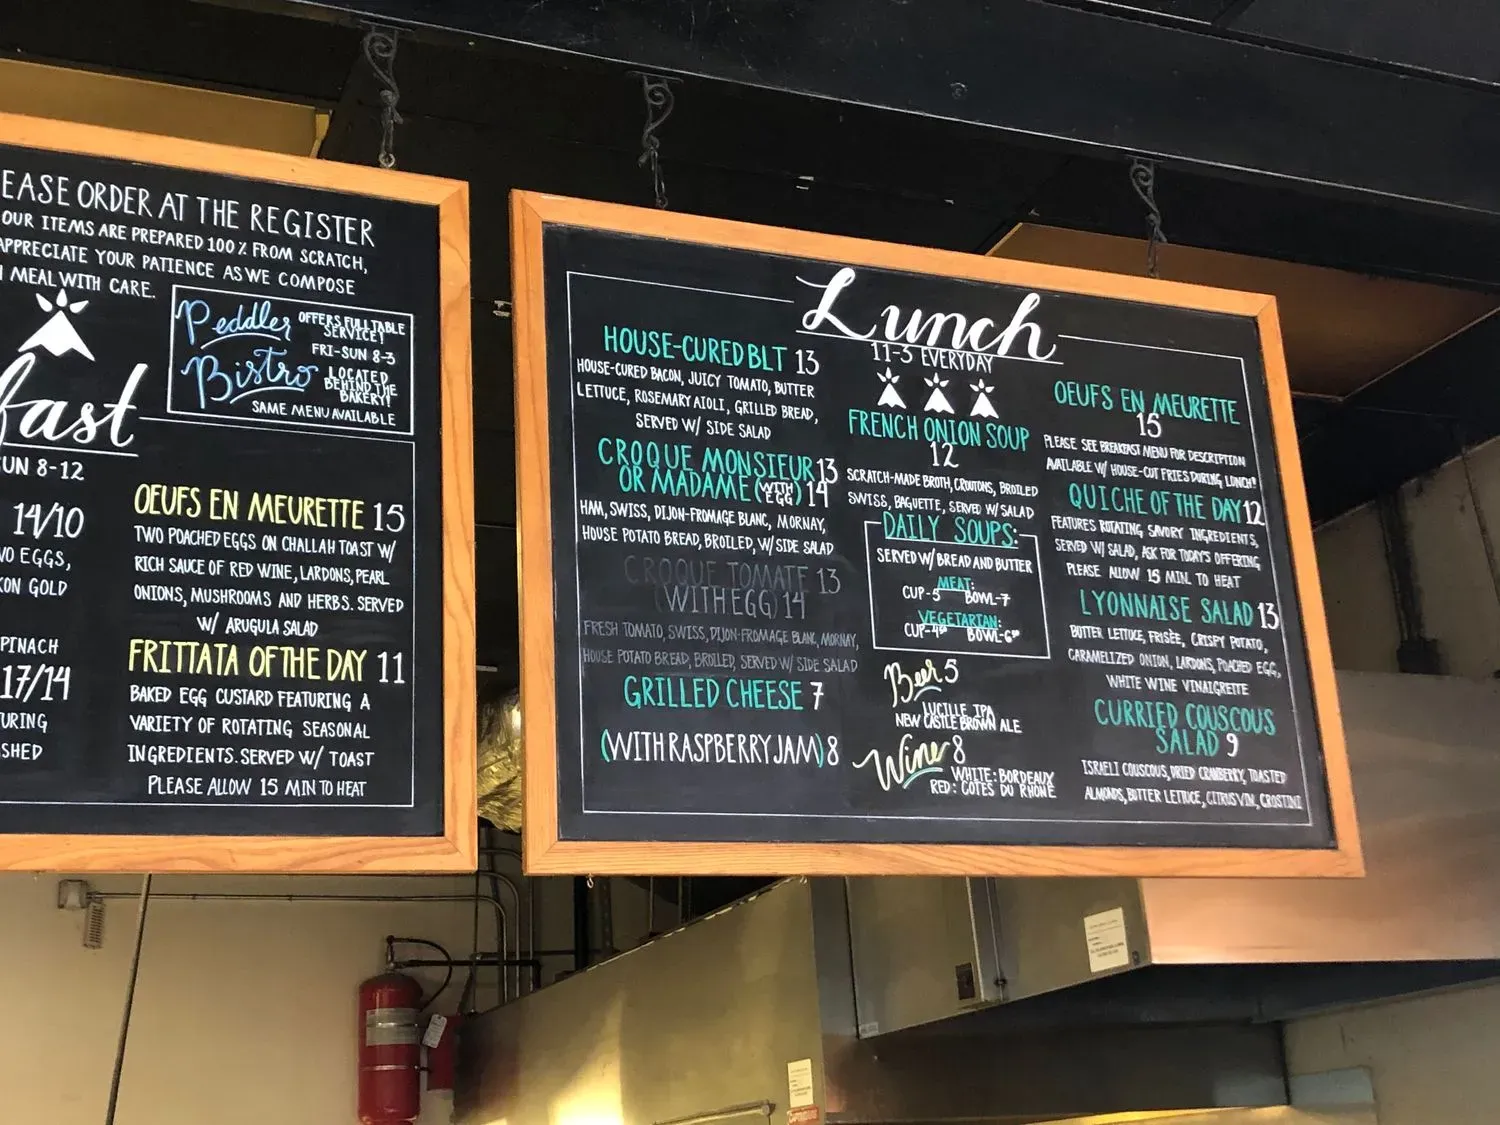 EASE ORDER AT THE REGISTER
OUR ITEMS ARE PREPARED 100% FROM SCRATCH,
APPRECIATE YOUR PATIENCE AS WE COMPOSE
MEAL WITH CARE.
Peddler
Bistro
OFFERS FULL TABLE
SERVICE!
FRI-SUN 8-3
LOCATED
BEHIND THE
BAKERY!
SAME MENU AVAILABLE
fast
UN 8-12
14/10
EGGS,
GOLD
PINACH
17/14
URING
SHED
OEUFS EN MEURETTE 15
TWO POACHED EGGS ON CHALLAH TOAST W/
RICH SAUCE OF RED WINE, LARDONS, PEARL
ONIONS, MUSHROOMS AND HERBS. SERVED
W/ ARUGULA SALAD
FRITTATA OF THE DAY 11
BAKED EGG CUSTARD FEATURING A
VARIETY OF ROTATING SEASONAL
INGREDIENTS. SERVED W/ TOAST
PLEASE ALLOW 15 MIN TO HEAT
Lunch
11-3 EVERYDAY
HOUSE-CURED BLT 13
HOUSE-CURED BACON, JUICY TOMATO, BUTTER
LETTUCE, ROSEMARY AIOLI, GRILLED BREAD,
SERVED W/ SIDE SALAD
CROQUE MONSIEUR 13
OR MADAME (WITH EGG) 14
HAM, SWISS, DIJON-FROMAGE BLANC, MORNAY,
HOUSE POTATO BREAD, BROILED, W/ SIDE SALAD
CROQUE TOMATE 13
(WITH EGG) 14
FRESH TOMATO, SWISS, DIJON-FROMAGE BLANC, MORNAY,
HOUSE POTATO BREAD, BROILED, SERVED W/ SIDE SALAD
GRILLED CHEESE 7
(WITH RASPBERRY JAM) 8
FRENCH ONION SOUP
12
SCRATCH-MADE BROTH, CROUTONS, BROILED
SWISS, BAGUETTE, SERVED W/ SALAD
DAILY SOUPS:
SERVED W/ BREAD AND BUTTER
MEAT:
CUP-5 BOWL-7
VEGETARIAN:
CUP-4⁵⁰ BOWL-6⁵⁰
Beer 5
LUCILLE IPA
NEW CASTLE BROWN ALE
Wine 8
WHITE: BORDEAUX
RED: COTES DU RHONE
OEUFS EN MEURETTE
15
PLEASE SEE BREAKFAST MENU FOR DESCRIPTION
AVAILABLE W/ HOUSE-CUT FRIES DURING LUNCH!
QUICHE OF THE DAY 12
FEATURES ROTATING SAVORY INGREDIENTS,
SERVED W/ SALAD, ASK FOR TODAY'S OFFERING
PLEASE ALLOW 15 MIN. TO HEAT
LYONNAISE SALAD 13
BUTTER LETTUCE, FRISÈE, CRISPY POTATO,
CARAMELIZED ONION, LARDONS, POACHED EGG,
WHITE WINE VINAIGRETTE
CURRIED COUSCOUS
SALAD 9
ISRAELI COUSCOUS, DRIED CRANBERRY, TOASTED
ALMONDS, BUTTER LETTUCE, CITRUS VIN, CROSTINI